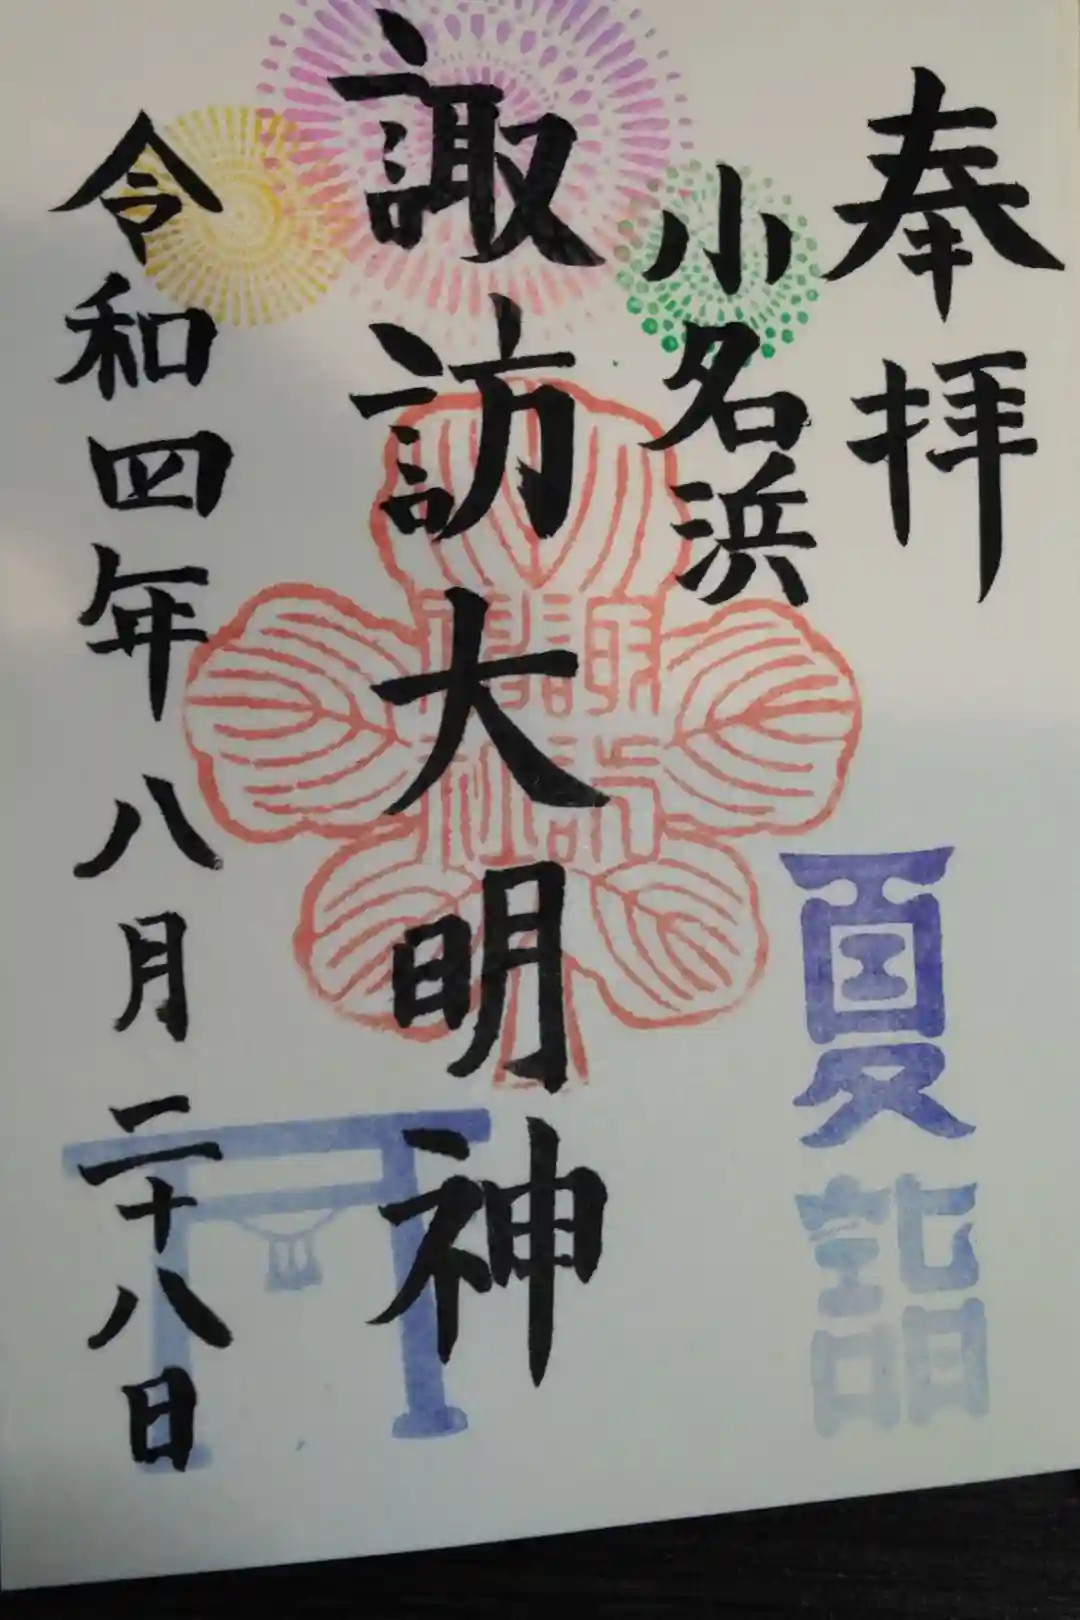 奉拝
小名浜
夏詣
諏訪大明神
諏訪
神社
令和四年八月二十八日